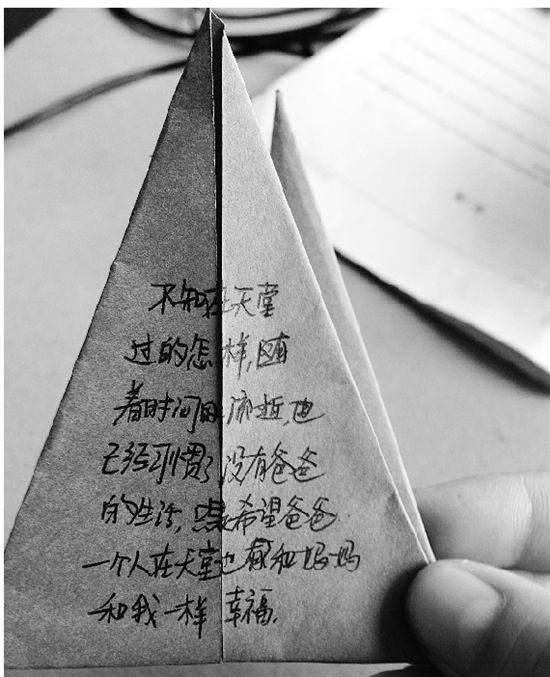 不知在天堂
过的怎样,随
着时间的流逝,也
已经习惯了没有爸爸
的生活,只是希望爸爸
一个人在天堂也能和妈妈
和我一样幸福.